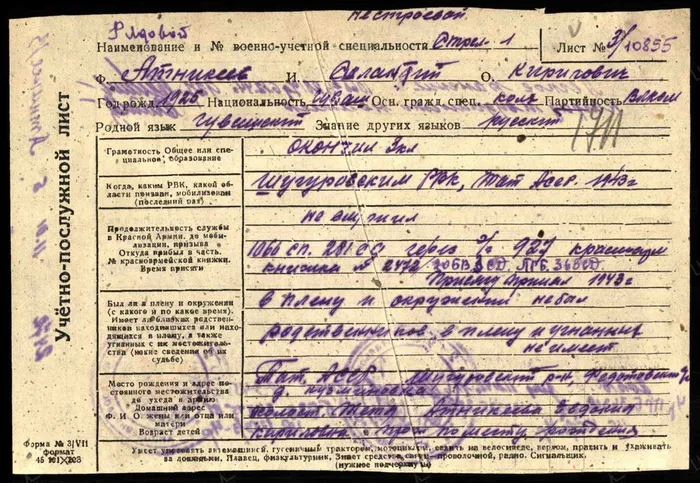 Рядовой
Нестроевой
Наименование и № военно-учетной специальности Стрел. 1 Лист № 3/10855
Ф. Атникеев И. О. Кирилович
Год рожд. 1925 Национальность чуваш Осн. гражд. спец. Партийность Влксм
Родной язык чувашский Знание других языков русский
Учётно-послужной лист
Грамотность Общее или спе-
циальное, образование
окончил 3кл
Когда, каким РВК, какой об-
ласти призван, мобилизован
(последний раз)
Шугуровским РВК, Тат. Асср. 1943г
Продолжительность службы
в Красной Армии, до мобі-
лизации, призыва
Откуда прибыл в часть.
№ красноармейской книжки.
Время присяги
не служил
1066 сп. 281 сд через 927 красноарм
книжка № 2472
Присягу принял 1943г
Был ли в плену и окружении
(с какого и по какое время).
Имеет ли близких родствен-
ников находившихся или нахо-
дящихся в плену, а также
угнанных с их местожитель-
ства (какие сведения об их
судьбе)
в плену и окружении небыл
родственников в плену и угнанных
не имеет
Место рождения и адрес по-
стоянного местожительства
до ухода в армию
Домашний адрес
Ф. И О. жены или отца или
матери
Возраст детей
Тат. АССР Шугуровский р-н, Федотовский
д. кузминовка
Атникеева
Кириловна прож по месту рождения
Умеет управлять автомашиной, гусеничным трактором, мотоциклом, ездить на велосипеде, верхом, править и ухаживать
за лошадьми, Плавец, физкультурник, Знает средства связи—проволочной, радио. Сигнальщик.
(нужное подчеркнуть)
Форма № 3/VII
формат